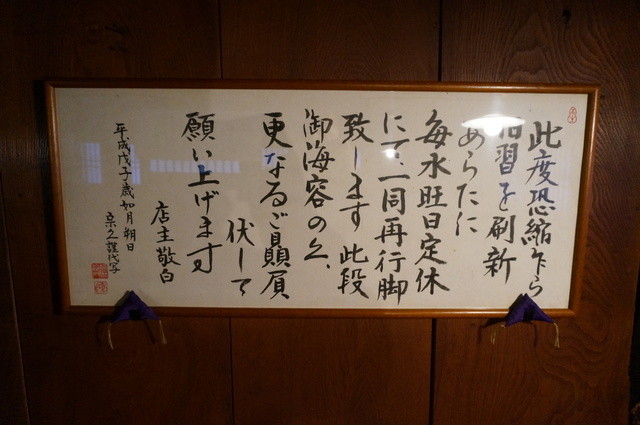 此度恐縮乍ら
習を刷新
あらたに
毎水旺日定休
にて、一同再行脚
致します 此段
御海容の上、
更なるご贔屓
伏して
願い上げます
店主敬白
平成戊子歳如月朔日
謹代写